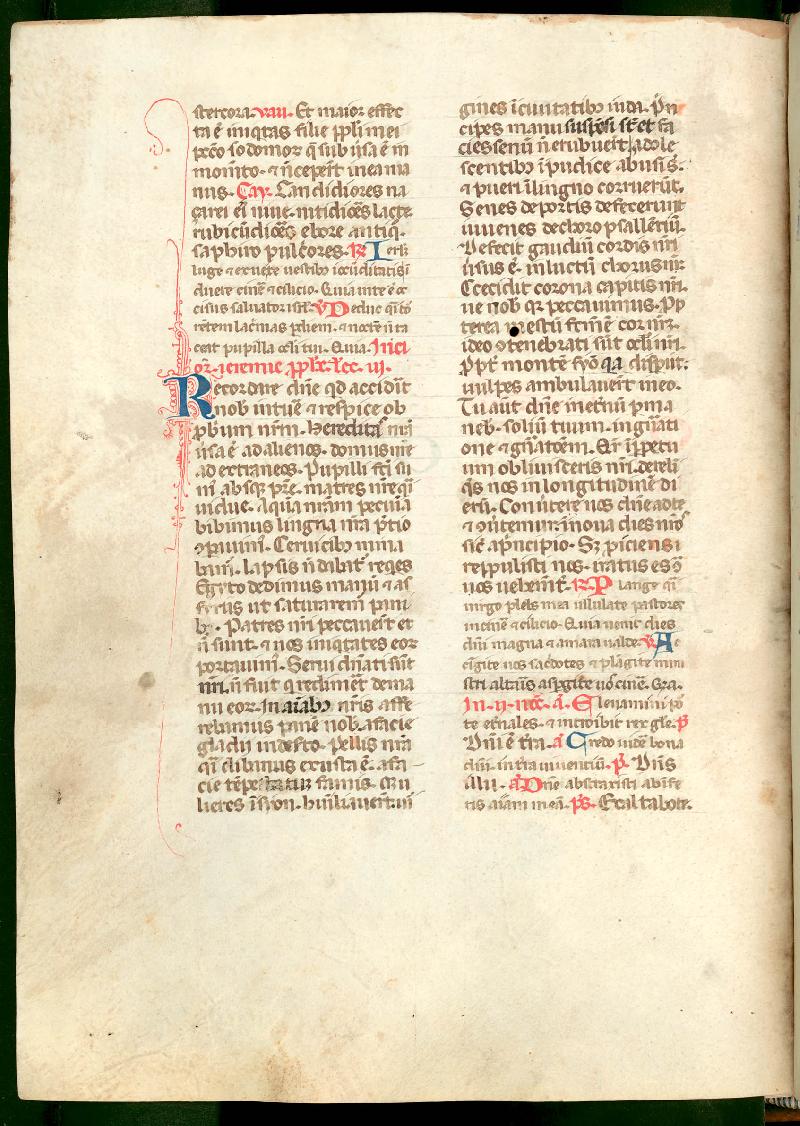 stercora. vau. Et maior effec
ta ē iniqtas filie ppli mei
pccō sodomor q̄ subūsa ē in
momīto. ⁊ n̄ ceperūt in ea ma
nus. Zay. Candidiores na
çarei eī niue. nitidiōes lacte
rubicūdiōes ebore antiq̄.
saphiro pulcōres. R Ierlm
luge ⁊ exuere uestibꝫ iocūditatis ī
duere cinē ⁊ cilicio. Quia in te ē oc
cisus saluator isrl. V Deduc qͥ tō
rētem lac̄mas p diem. ⁊ noctē n̄ ta
ceat pupilla oc̄li tui. Quia. Inci
or. ieremie pphe. lec. iij.
Recordare dn̄e qd acciderit
nob̄ intuē ⁊ respice ob
pbum nrm. Hereditas nrā
ūsa ē ad alienos. domus nrē
ad extraneos. Pupilli fc̄i su
mꝰ absqꝫ pr̄e. matres nrē qͥ
uidue. Aquā nrām pecunia
bibimus ligna nrā p̄tio
ꝯpauimꝰ. Ceruicibꝫ mina
bimꝰ. lapsis n̄ dabatꝰ reqes
Egyto dedimus manū ⁊ as
syriis ut saturarem pani
b̄. Patres nrī peccauert et
n̄ sunt. ⁊ nos iniqtates eoꝝ
portauimꝰ. Serui dn̄ati sūt
nrī. n̄ fuit q redimet de ma
nu eoꝝ. In aīabꝫ nrīs affe
rebamus panē nob̄. a facie
gladii in desto. Pellis nrā
qͥ clibanus exusta ē. a fa
cie tēpestatum famis. Mu
lieres ī syon. humiliauerūt ūi
gines ī ciuitatibꝫ iuda. Pn
cipes manu suspēsi sūt et fa
cies senū n̄ erubuert. adole
scentibꝫ īpudice abusi s̄.
⁊ pueri ī ligno corruerūt.
Senes de portis defecerunt
iuuenes de choro psallētiū.
Defecit gaudiū cordis nrī
ūsus ē. in luctū chorus nr̄.
Cecidit corona capitis nrī.
ue nob̄ qꝛ peccauimus. Pp
terea mestū fc̄m ē cor nr̄m.
ideo ꝯtenebrati sūt oc̄li nrī.
Ppt̄ montē syō qa dispiit.
uulpes ambulauert in eo.
Tu aut̄ dn̄e in et̄nū pma
neb̄. soliū tuum. in gn̄ati
one ⁊ gn̄atōem. Qr̄ ī ppetu
um obliuisceris nrī. dereli
q̄s nos in longitudinē di
erū. Conūtere nos dn̄e ad te
⁊ ꝯūtemur. inoua dies nrōs
sic̄ a pncipio. Sꝫ piciens
reppulisti nos. iratus es ꝯ
nos uehemt̄. R Plange qͥ
uirgo plebs mea ullulate pastores
in cinē ⁊ cilicio. Quia uenit dies
dn̄i magna ⁊ amara ualde. V Ac
cigite uos sac̄dotes ⁊ plāgite mini
stri altaris aspgite uos cinē. Qia.
In. ij. noc̄. a. Eleuamini por
te et̄nales. ⁊ introibit rex gle. p
Dn̄i ē tra. a Credo uidē bona
dn̄i. in tra uiuentiū. p. Dn̄s
illu. a Dn̄e abstraxisti ab īfe
ris aīam meā. ps. Exaltabo te.